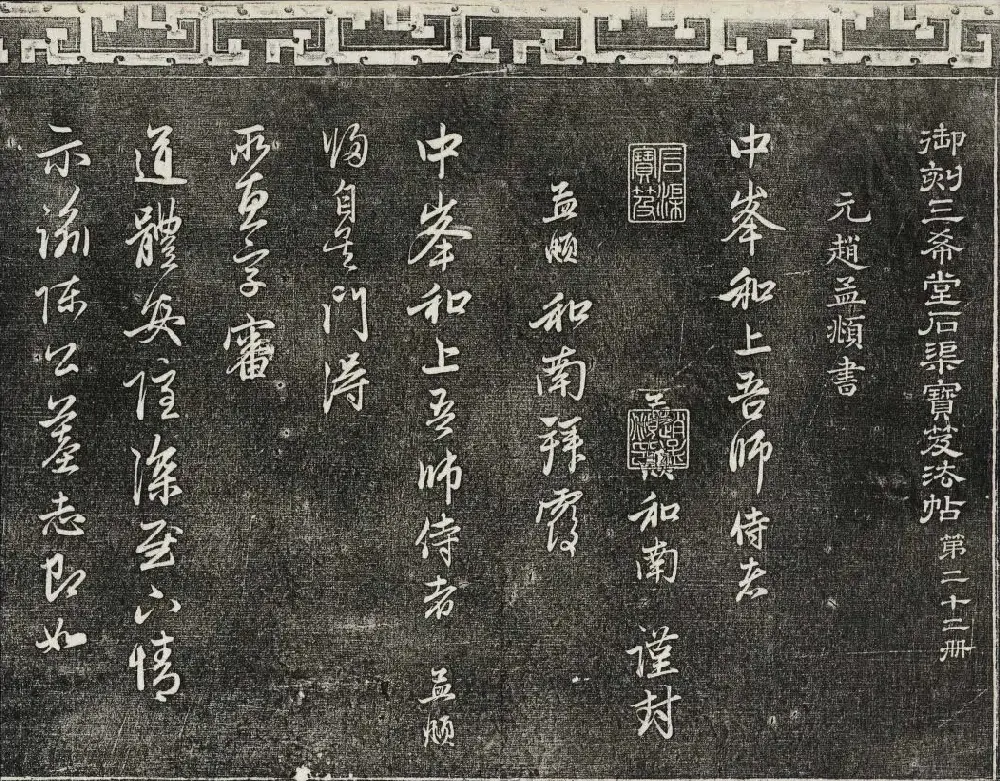 御刻三希堂石渠寶笈法帖 第二十二册
元趙孟頫書
中峯和上吾師侍者
石渠寶笈
和南 謹封
孟頫 和南拜覆
中峯和上吾師侍者 孟頫
歸自吳門得
所惠字審
道體安隱深慰下情
示諭陳公墓志即如